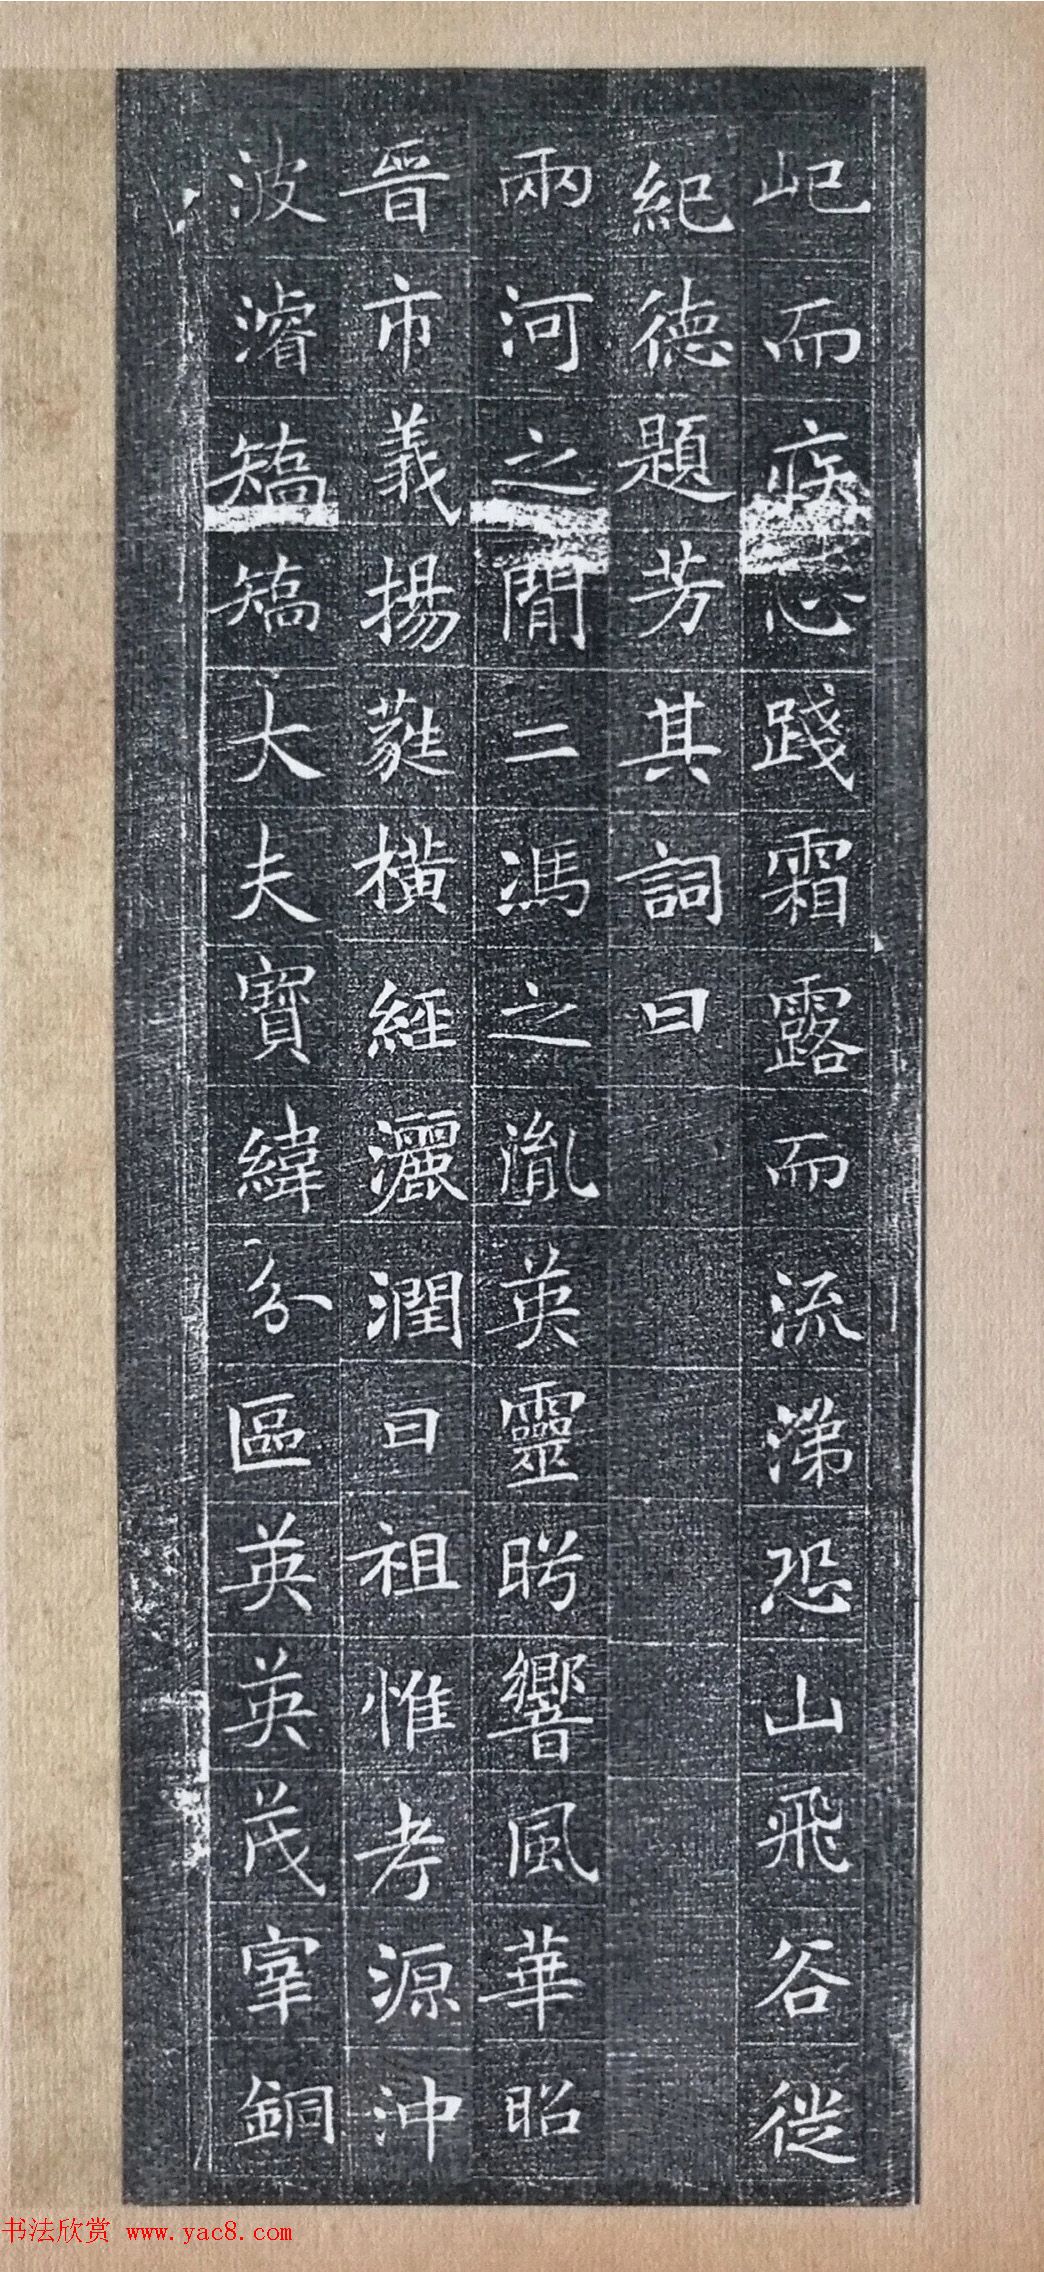 屺而疚心踐霜露而流涕恐山飛谷從
紀德題芳其詞曰
兩河之間二馮之胤英靈肸響風華昭
晉市義揚蕤橫經灑潤曰祖惟考源沖
波濬矯矯大夫寶緯分區英英茂宰銅
书法欣赏 www.yac8.com